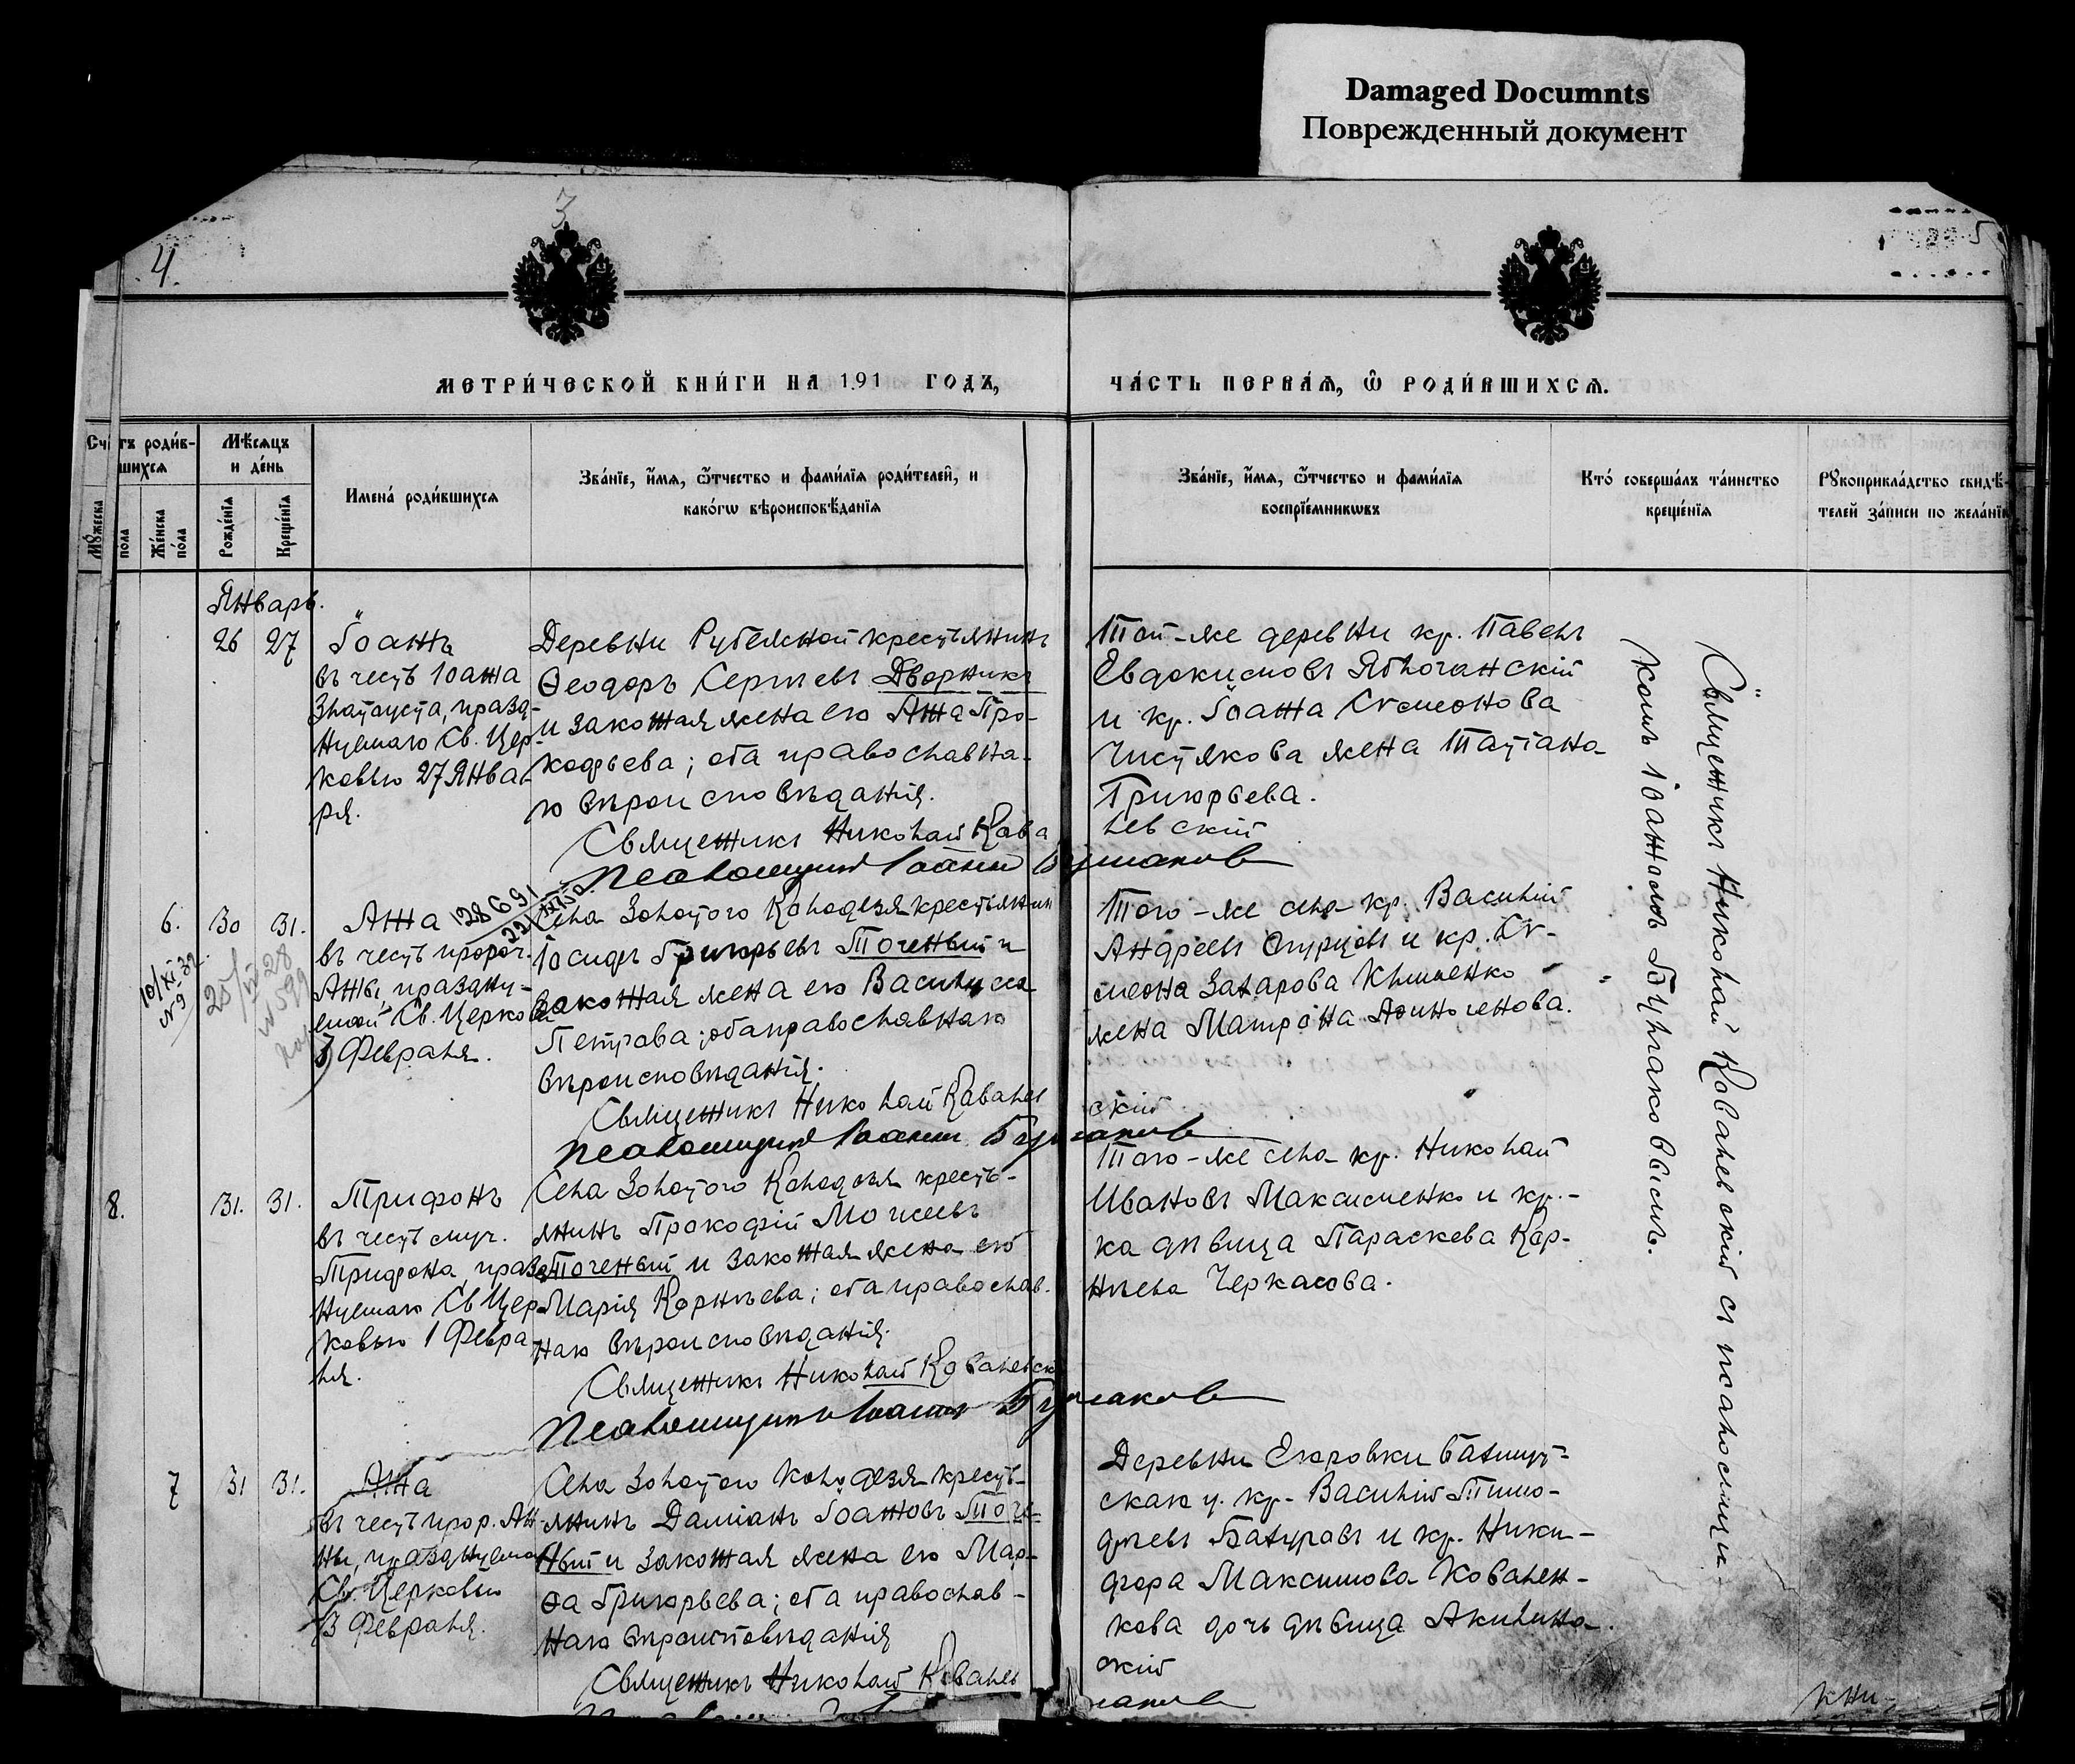 Damaged Documnts
Поврежденный документ
3
4.
5
МЕТРИ́ЧЕСКОЙ КНИ́ГИ НА 191 ГОДЪ,
ЧА́СТЬ ПЕРВАЯ, Ѡ РОДИ́ВШИХСЯ.
Счетъ роди́в-
шихся
Мꙋжеска
пола
Же́нска
по́ла
Мѣсяцъ
и де́нь
Рожде́нїя
Креще́нїя
Имена́ роди́вшихся
Зва́нїе, и́мя, ѻ́тчество и фами́лїя роди́телей, и
како́гѡ вѣроисповѣ́данїя
Зва́нїе, и́мя, ѻ́тчество и фами́лїя
воспрїе́мникѡвъ
Кто́ соверша́лъ та́инство
креще́нїя
Рꙋкоприкла́дство свидѣ́-
телей за́писи по жела́нїю
Январь.
26 27
Іоаннъ
въ честь Іоанна
Златоуста, празд-
нуемаго Св. Цер-
ковью 27 Янва-
ря.
Деревни Рубежной крестьянинъ
Ѳеодоръ Сергіевъ Дворникъ
и законная жена его Анна Про-
кофьева; оба православна-
го вѣроисповѣданія.
Священникъ Николай Кова
левскій
Псаломщикъ Іоаннъ Булгаковъ
Той-же деревни кр. Павелъ
Евдокимовъ Яблочанскій
и кр. Іоанна Симеонова
Чистякова жена Татіана
Григорьева.
6. 30 31.
Анна
128691
въ честь пророч.
Анны, праздну-
емой Св. Церковью
3 Февраля.
10/XI-32
Села Золотого Колодезя крестьянин
Іосифъ Григорьевъ Точеный и
законная жена его Василисса
Петрова; оба православнаго
вѣроисповѣданія.
Священникъ Николай Ковалев
скій
Псаломщикъ Іоаннъ Булгаковъ
Того-же села кр. Василій
Андреевъ Спурцевъ и кр. Си-
меона Захарова Клименко
жена Матрона Аѳиногенова.
8. 31. 31.
Трифонъ
въ честь муч.
Трифона, празд-
нуемаго Св. Цер-
ковью 1 Февра-
ля.
Села Золотого Колодезя кресть-
янинъ Прокофій Моисеевъ
Точеный и законная жена его
Марія Корнѣева; оба православ.
наго вѣроисповѣданія.
Священникъ Николай Ковалевскій
Псаломщикъ Іоаннъ Булгаковъ
Того-же села кр. Николай
Ивановъ Максименко и кр.-
ка дѣвица Параскева Кор-
нѣева Черкасова.
7 31 31.
Анна
въ честь прор. Ан-
ны, празднуемой
Св. Церковью
3 Февраля.
Села Золотого Колодезя кресть-
янинъ Даміанъ Іоанновъ Точе-
ный и законная жена его Мар-
ѳа Григорьева; оба православ-
наго вѣроисповѣданія
Священникъ Николай Ковалев
скій
Деревни Егоровки Бахмут-
скаго у. кр. Василій Тимо-
фѣевъ Батуравъ и кр. Ники-
фора Максимова Ковален-
кова дочь дѣвица Акилина.
Священникъ Николай Ковалевскій съ псаломщи-
комъ Іоанномъ Булгаковымъ.
кни-